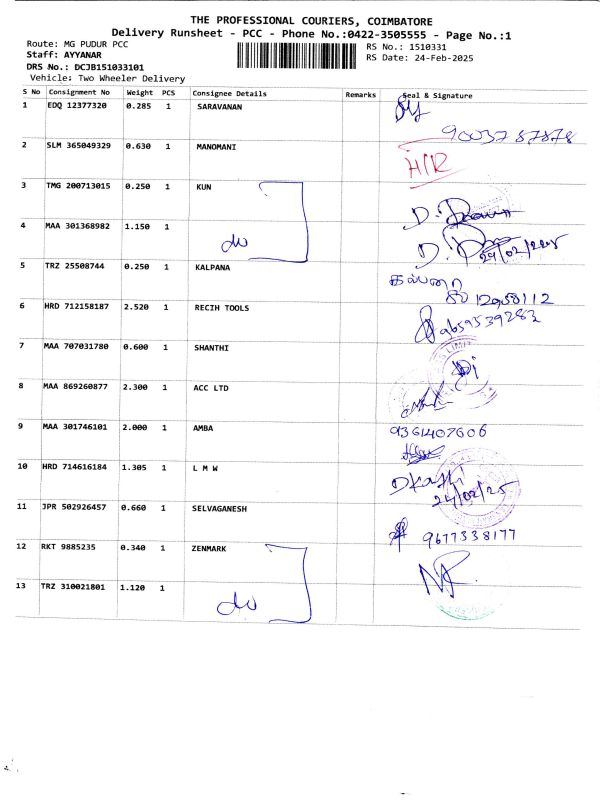 THE PROFESSIONAL COURIERS, COIMBATORE
Delivery Runsheet - PCC - Phone No.:0422-3505555 - Page No.:1
Route: MG PUDUR PCC
RS No.: 1510331
Staff: AYYANAR
RS Date: 24-Feb-2025
DRS No.: DCJB151033101
Vehicle: Two Wheeler Delivery
S No Consignment No Weight PCS Consignee Details Remarks Seal & Signature
1 EDQ 12377320 0.285 1 SARAVANAN
9003787878
2 SLM 365049329 0.630 1 MANOMANI H/R
3 TMG 200713015 0.250 1 KUN
4 MAA 301368982 1.150 1 do
5 TRZ 25508744 0.250 1 KALPANA
6 HRD 712158187 2.520 1 RECIH TOOLS 9659539283
7 MAA 707031780 0.600 1 SHANTHI
8 MAA 869260877 2.300 1 ACC LTD
9 MAA 301746101 2.000 1 AMBA 9361407606
10 HRD 714616184 1.305 1 L M W
24/02/25
11 JPR 502926457 0.660 1 SELVAGANESH
9677338177
12 RKT 9885235 0.340 1 ZENMARK
13 TRZ 310021801 1.120 1 do